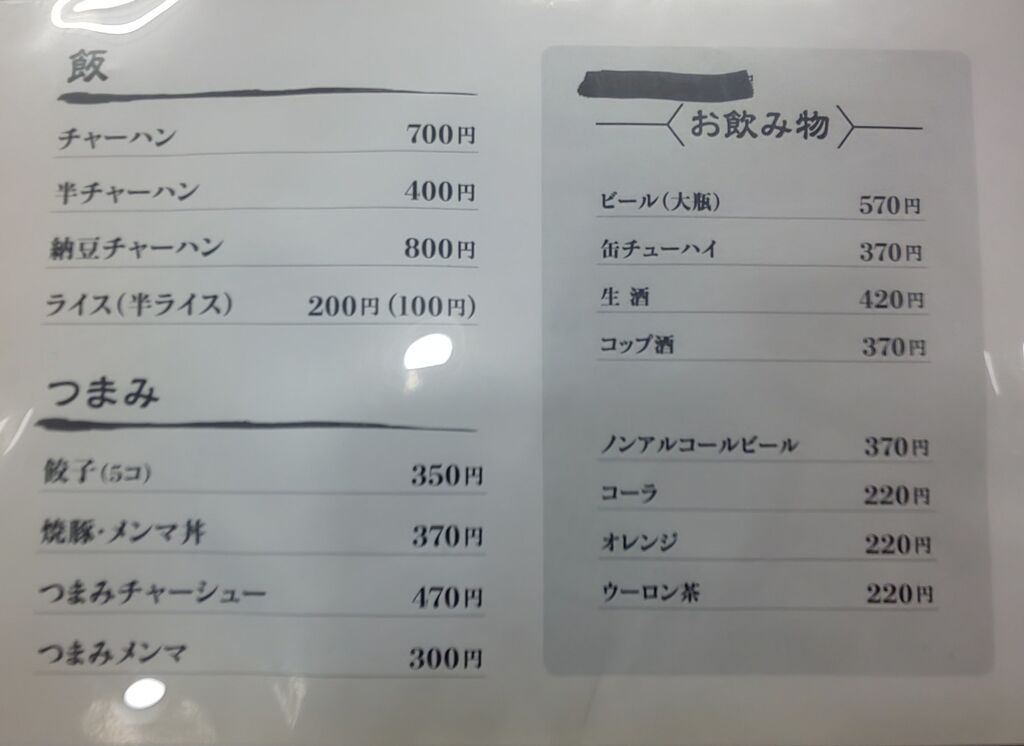 飯
チャーハン 700円
半チャーハン 400円
納豆チャーハン 800円
ライス(半ライス) 200円(100円)
つまみ
餃子(5コ) 350円
焼豚・メンマ丼 370円
つまみチャーシュー 470円
つまみメンマ 300円
お飲み物
ビール(大瓶) 570円
缶チューハイ 370円
生酒 420円
コップ酒 370円
ノンアルコールビール 370円
コーラ 220円
オレンジ 220円
ウーロン茶 220円